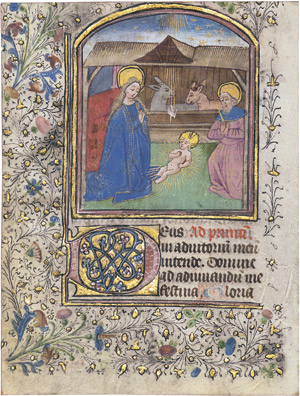 Deus Ad primam
in adiutoriū meū
intende. Domine
ad adiuuandū me
festina Gloria